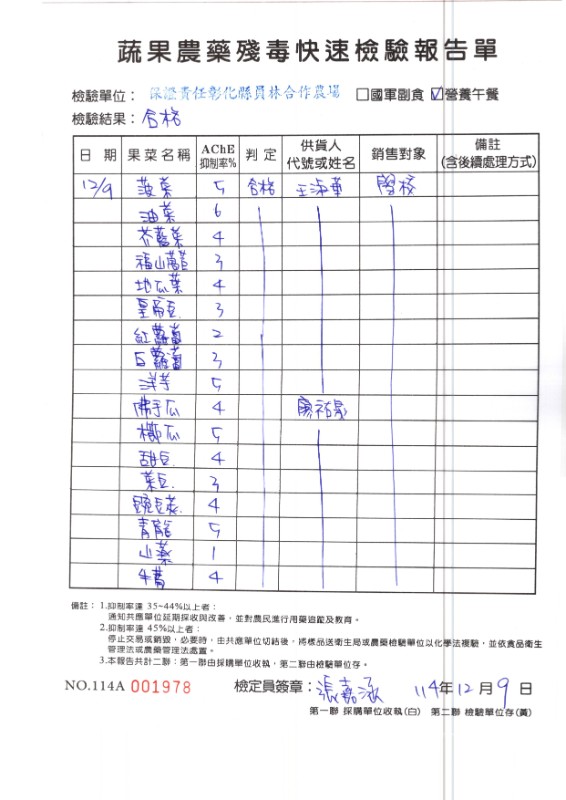 蔬果農藥殘毒快速檢驗報告單
檢驗單位： 保證責任彰化縣員林合作農場 □國軍副食 ☑營養午餐
檢驗結果：合格
日 期 果菜名稱 AChE 抑制率% 判 定 供貨人 代號或姓名 銷售對象 備註 (含後續處理方式)
12/9 菠菜 5 合格 王淑華 學校
油菜 6
芥藍菜 4
福山萵苣 3
地瓜葉 4
皇帝豆 3
紅蘿蔔 2
白蘿蔔 3
洋芋 5
佛手瓜 4
櫛瓜 5
甜豆 4
菜豆 3
豌豆莢 4
青龍 5
山藥 1
牛蒡 4
備註：1.抑制率達 35~44%以上者：
通知共應單位延期採收與改善，並對農民進行用藥追蹤及教育。
2.抑制率達 45%以上者：
停止交易或銷毀，必要時，由共應單位切結後，將樣品送衛生局或農藥檢驗單位以化學法複驗，並依食品衛生
管理法或農藥管理法處置。
3.本報告共計二聯：第一聯由採購單位收執，第二聯由檢驗單位存。
NO.114A 001978 檢定員簽章：張嘉涵 114年12月9日
第一聯 採購單位收執(白) 第二聯 檢驗單位存(黃)